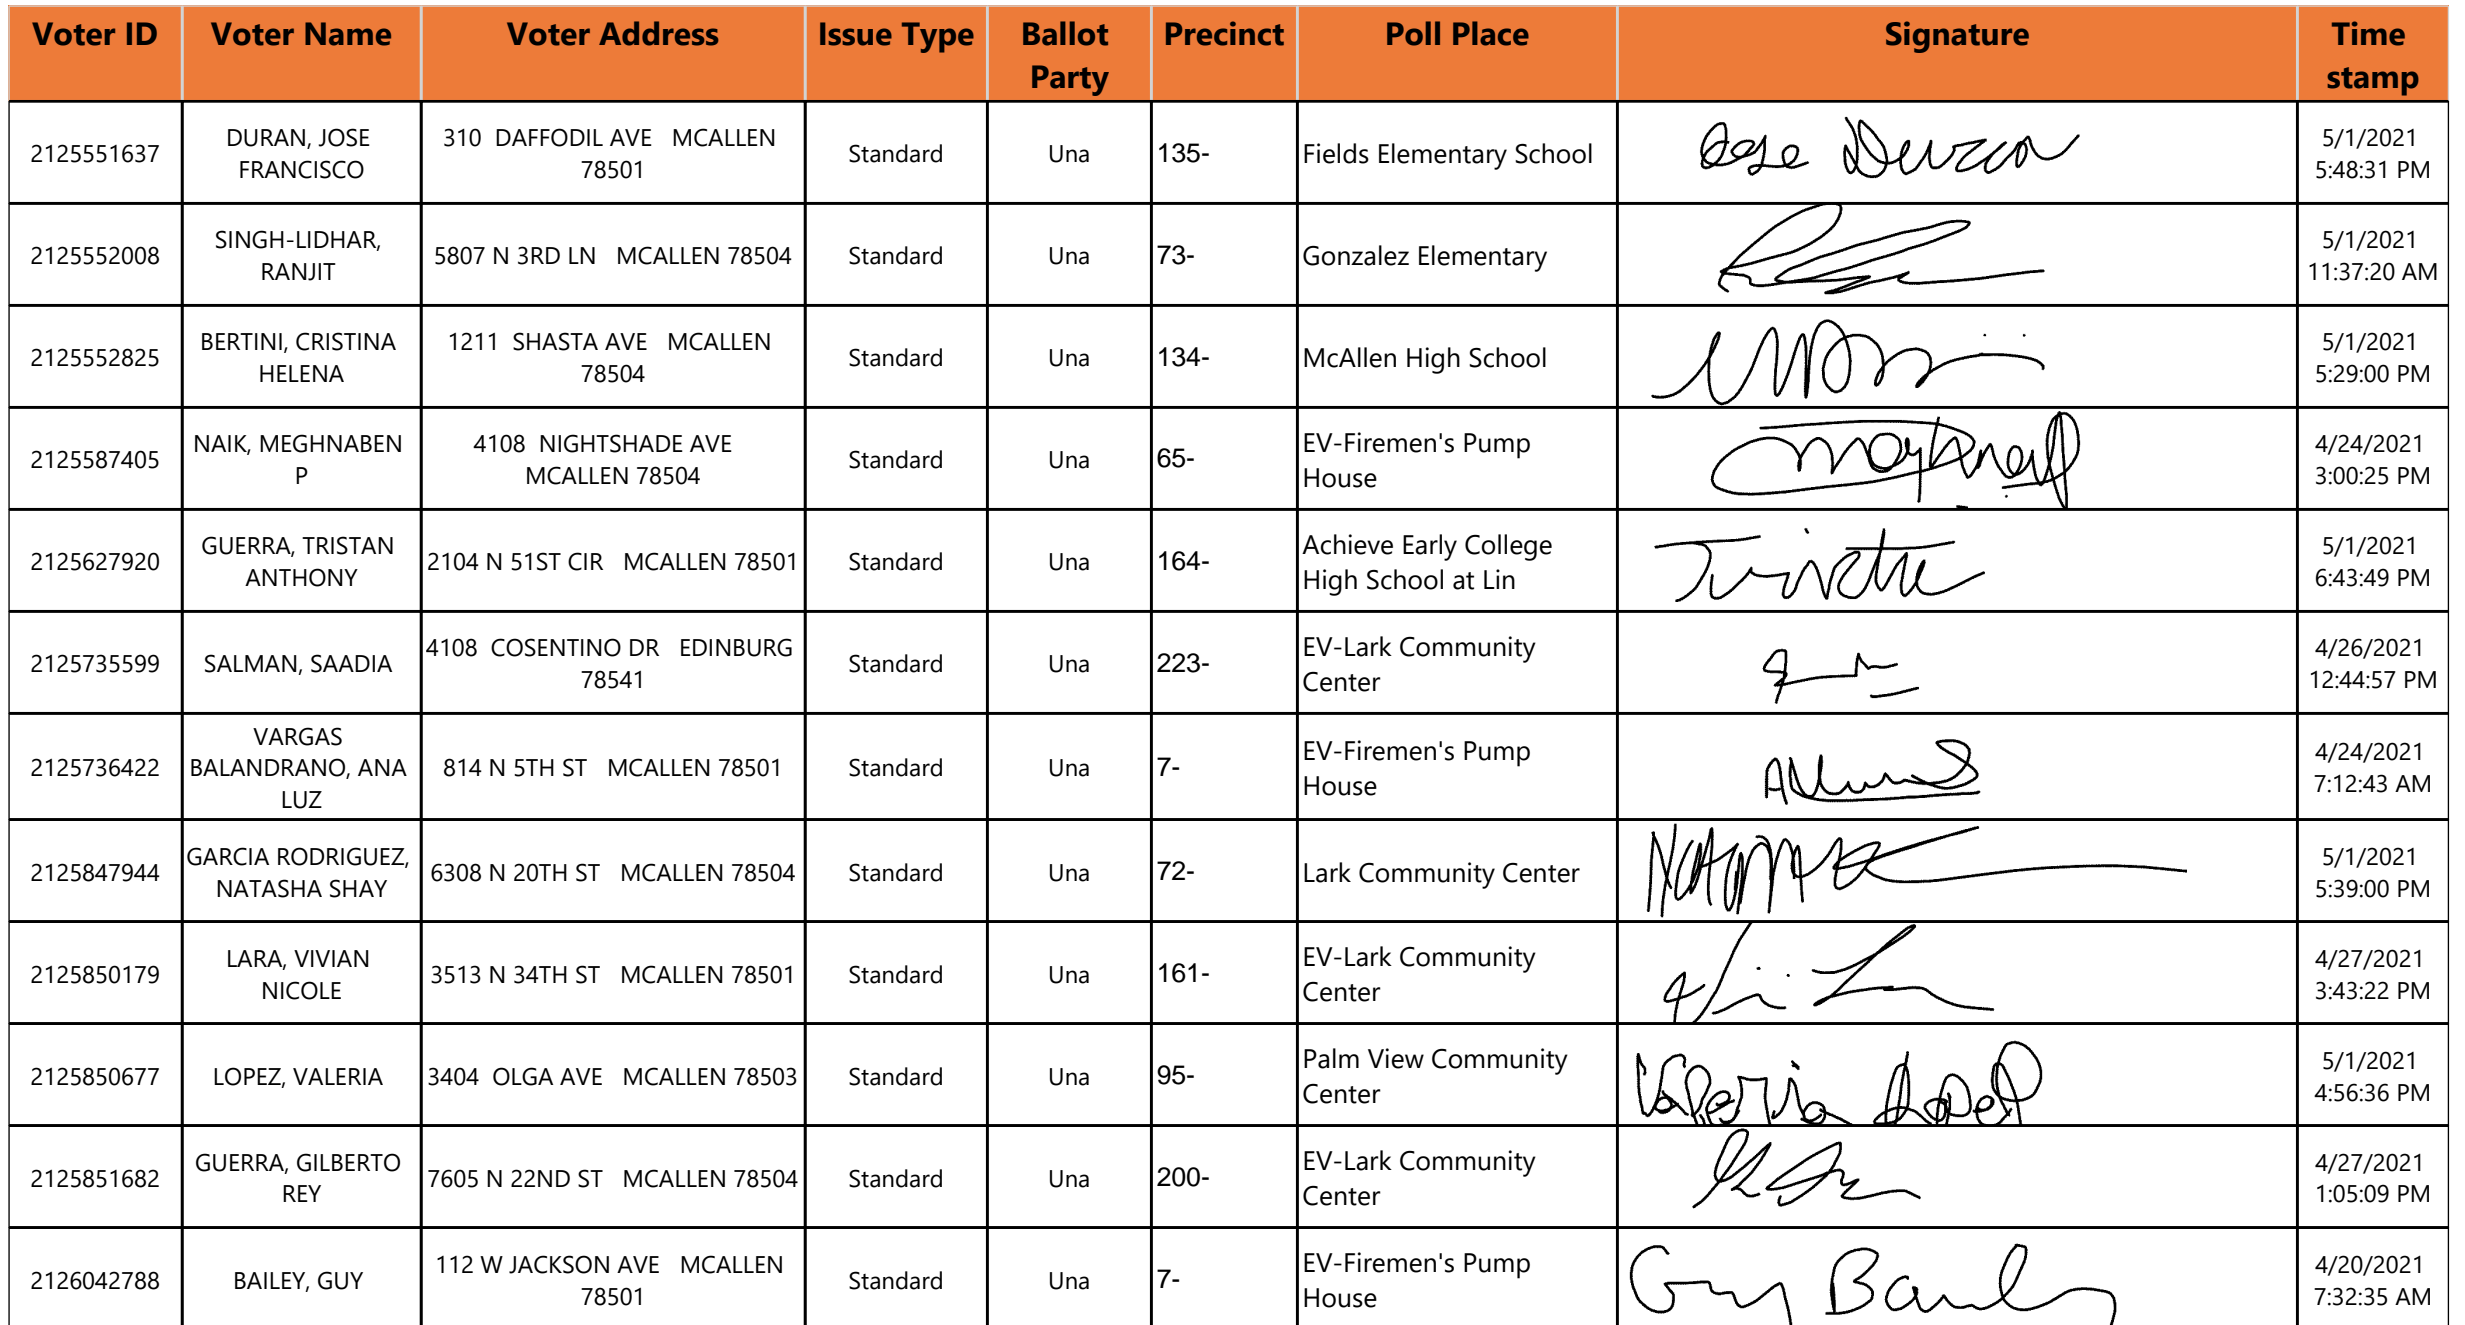 Voter ID Voter Name Voter Address Issue Type Ballot Party Precinct Poll Place Signature Time stamp
2125551637 DURAN, JOSE FRANCISCO 310 DAFFODIL AVE MCALLEN 78501 Standard Una 135- Fields Elementary School Jose Duran 5/1/2021 5:48:31 PM
2125552008 SINGH-LIDHAR, RANJIT 5807 N 3RD LN MCALLEN 78504 Standard Una 73- Gonzalez Elementary 5/1/2021 11:37:20 AM
2125552825 BERTINI, CRISTINA HELENA 1211 SHASTA AVE MCALLEN 78504 Standard Una 134- McAllen High School 5/1/2021 5:29:00 PM
2125587405 NAIK, MEGHNABEN P 4108 NIGHTSHADE AVE MCALLEN 78504 Standard Una 65- EV-Firemen's Pump House 4/24/2021 3:00:25 PM
2125627920 GUERRA, TRISTAN ANTHONY 2104 N 51ST CIR MCALLEN 78501 Standard Una 164- Achieve Early College High School at Lin 5/1/2021 6:43:49 PM
2125735599 SALMAN, SAADIA 4108 COSENTINO DR EDINBURG 78541 Standard Una 223- EV-Lark Community Center 4/26/2021 12:44:57 PM
2125736422 VARGAS BALANDRANO, ANA LUZ 814 N 5TH ST MCALLEN 78501 Standard Una 7- EV-Firemen's Pump House 4/24/2021 7:12:43 AM
2125847944 GARCIA RODRIGUEZ, NATASHA SHAY 6308 N 20TH ST MCALLEN 78504 Standard Una 72- Lark Community Center 5/1/2021 5:39:00 PM
2125850179 LARA, VIVIAN NICOLE 3513 N 34TH ST MCALLEN 78501 Standard Una 161- EV-Lark Community Center 4/27/2021 3:43:22 PM
2125850677 LOPEZ, VALERIA 3404 OLGA AVE MCALLEN 78503 Standard Una 95- Palm View Community Center Valeria Lopez 5/1/2021 4:56:36 PM
2125851682 GUERRA, GILBERTO REY 7605 N 22ND ST MCALLEN 78504 Standard Una 200- EV-Lark Community Center 4/27/2021 1:05:09 PM
2126042788 BAILEY, GUY 112 W JACKSON AVE MCALLEN 78501 Standard Una 7- EV-Firemen's Pump House Guy Bailey 4/20/2021 7:32:35 AM